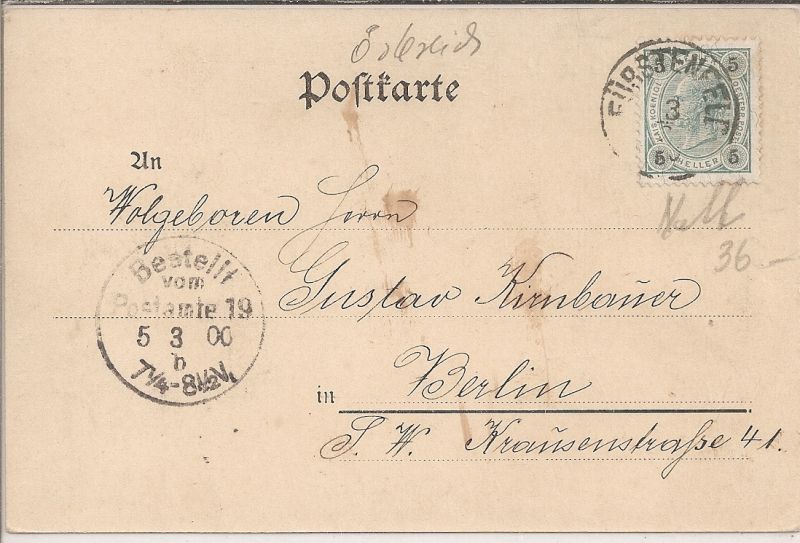 Postkarte
FÜRSTENFELD
3
5 5
5 HELLER 5
An
Wolgeboren Herrn
Gustav Kirnbauer
in Berlin
S. W. Krausenstraße 41.
Bestellt
vom
Postamte 19
5 3 00
b
7¼-8½V.
36.—